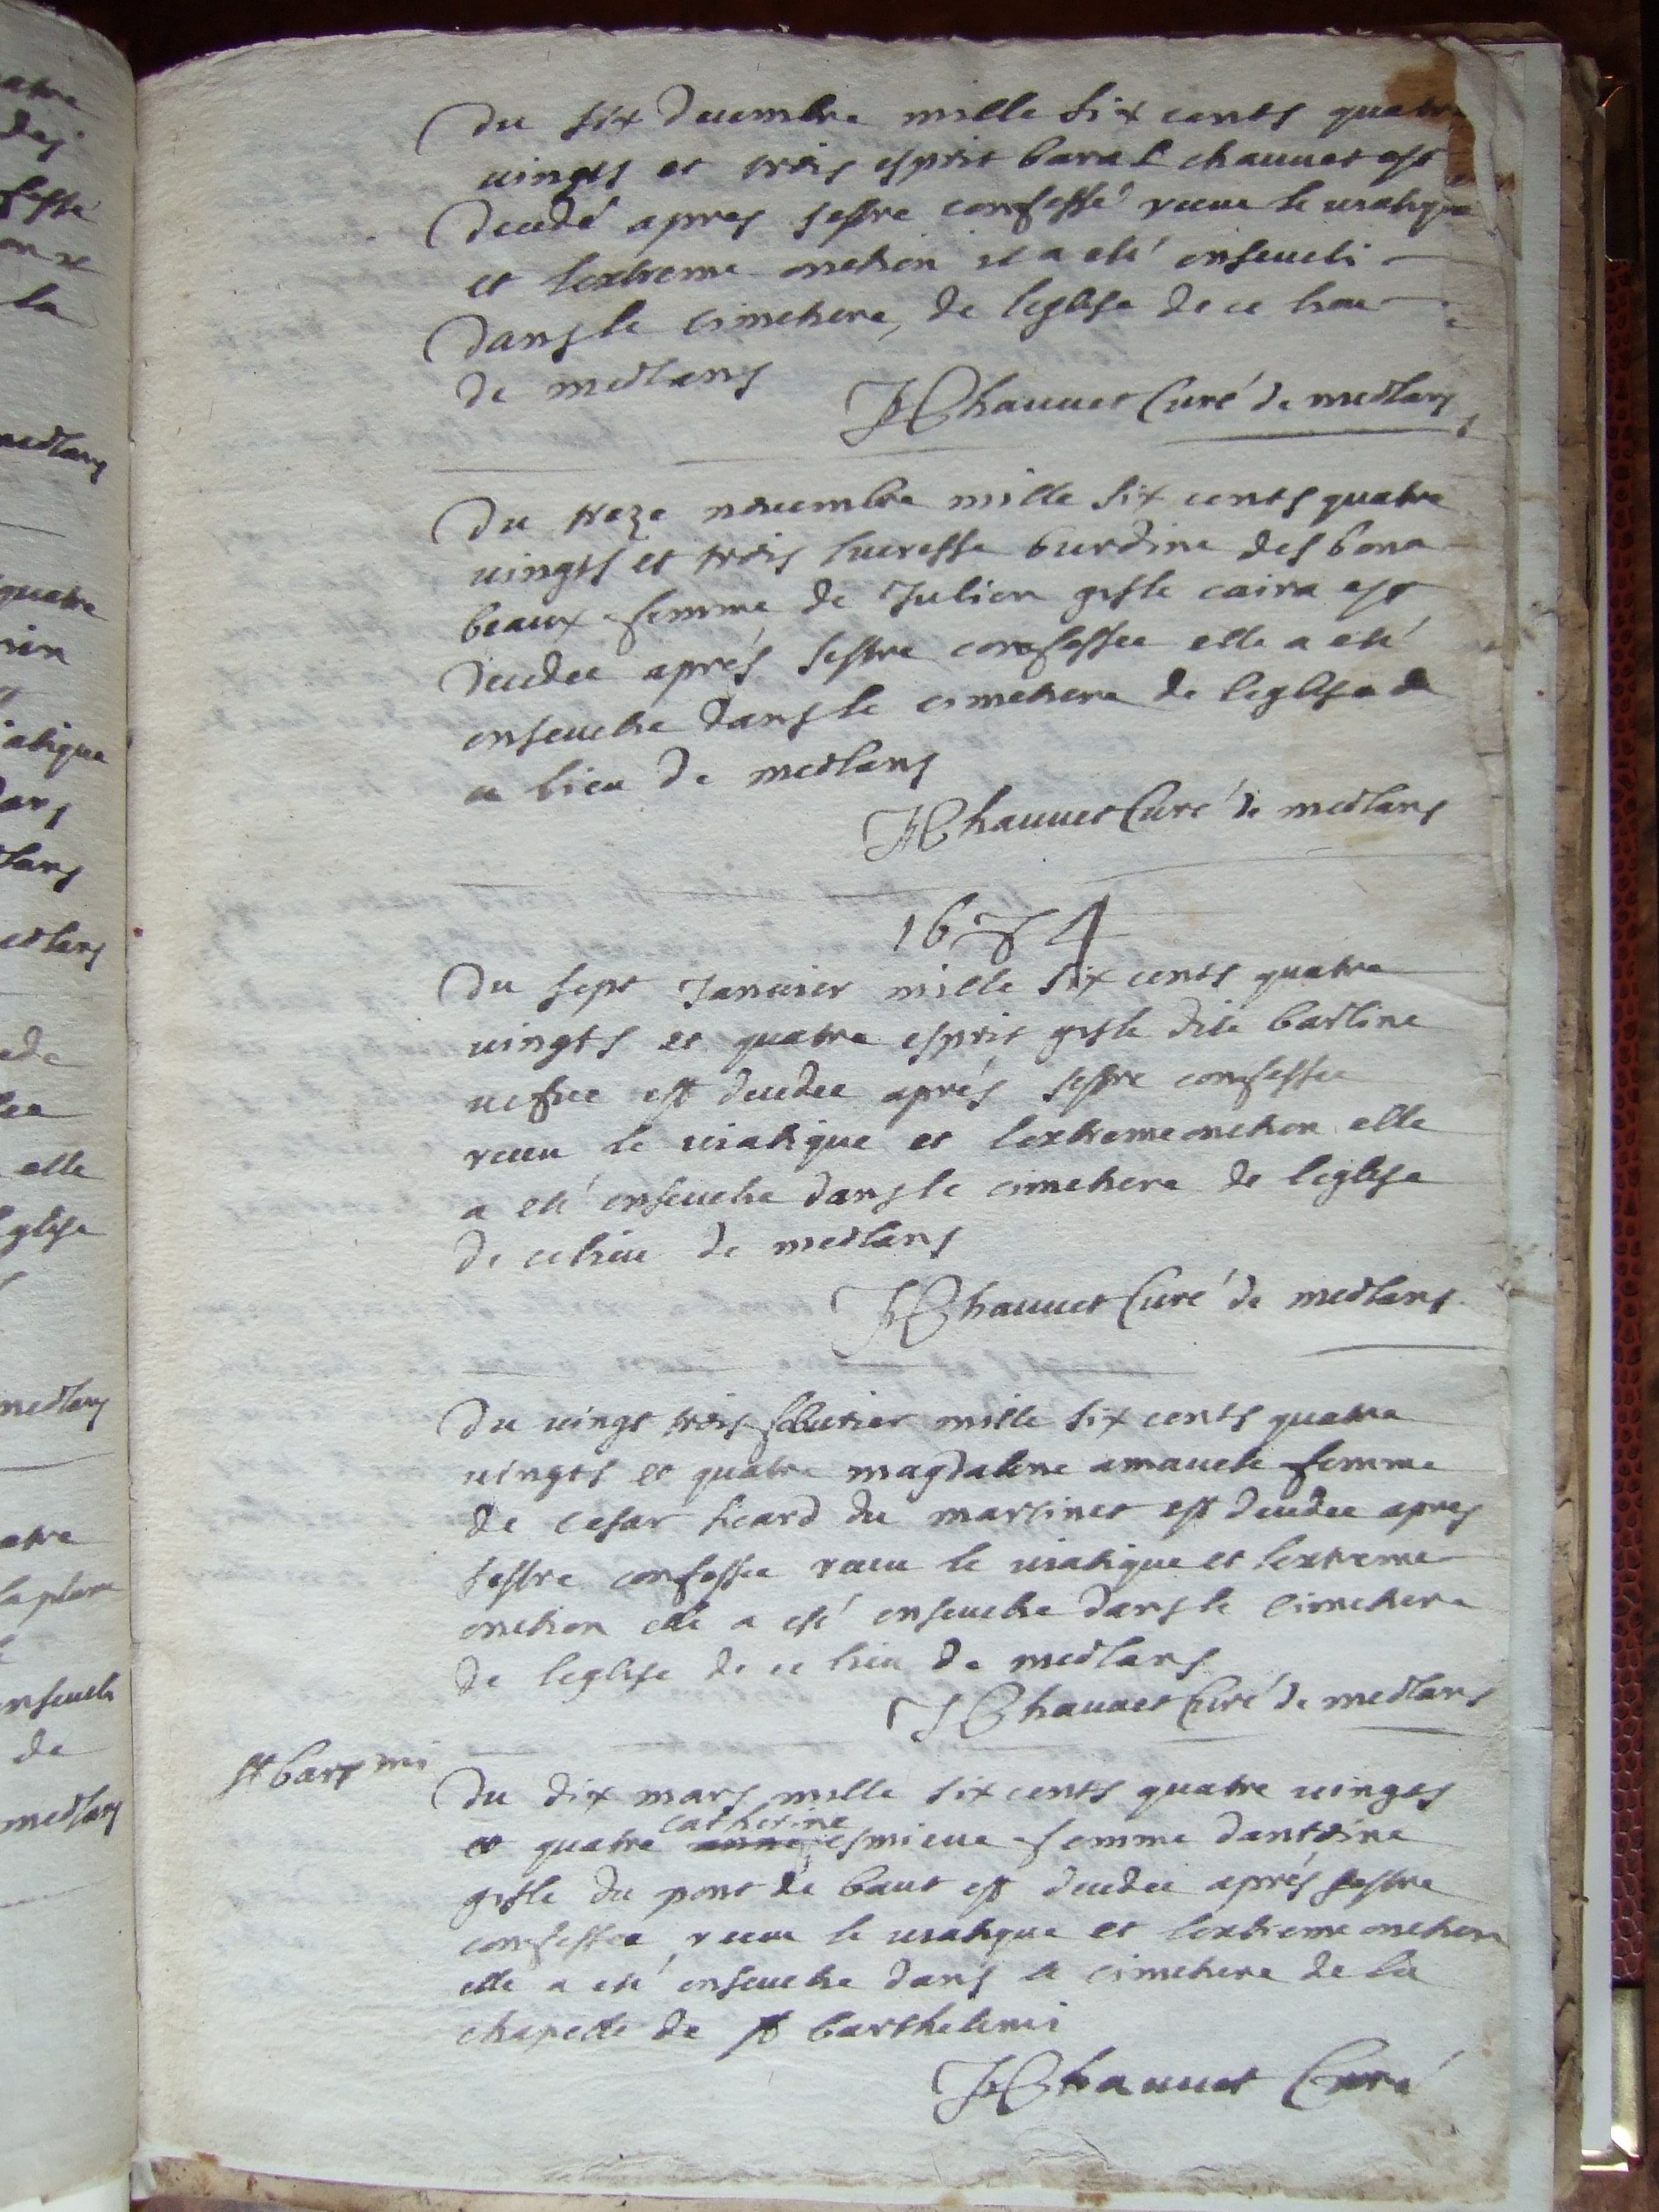 Du six decembre mille six cents quatre
uingts et trois esprit bara L chauuet est
decedé apres sestre confessé receu le uiatique
et lextreme onction il a eté enseueli
dans le cimetiere, de leglise de ce lieu
de meolans
JChauuet Curé de meolans
Du treze nouembre mille six cents quatre
uingts et trois lucresse burdine des bona
beaux femme de Julien gisle caira est
decedee aprés sestre confessee elle a eté
enseuelie dans le cimetiere de leglise de
ce lieu de meolans
JChauuet Curé de meolans
1684
Du sept Januier mille six cents quatre
uingts et quatre esprit gisle dite barline
uefue est decedee aprés sestre confessée
receu le uiatique et lextreme onction elle
a eté enseuelie dans le cimetiere de leglise
de ce lieu de meolans
JChauuet Curé de meolans
Du uingt trois feburier mille six cents quatre
uingts et quatre magdalene amauele femme
de cesar sicard du martinet est decedee apres
sestre confessee receu le uiatique et lextreme
onction elle a esté enseuelie dans le cimetiere
de leglise de ce lieu de meolans
JChauuet Curé de meolans
st bart mi
Du dix mars mille six cents quatre uingts
catherine
et quatre anne esmieue femme dantoine
gisle du pont de baut est decedee aprés sestre
confessee, receu le uiatique et lextreme onction
elle a eté enseuelie dans le cimetiere de la
chapelle de st barthelemi
JChauuet Curé